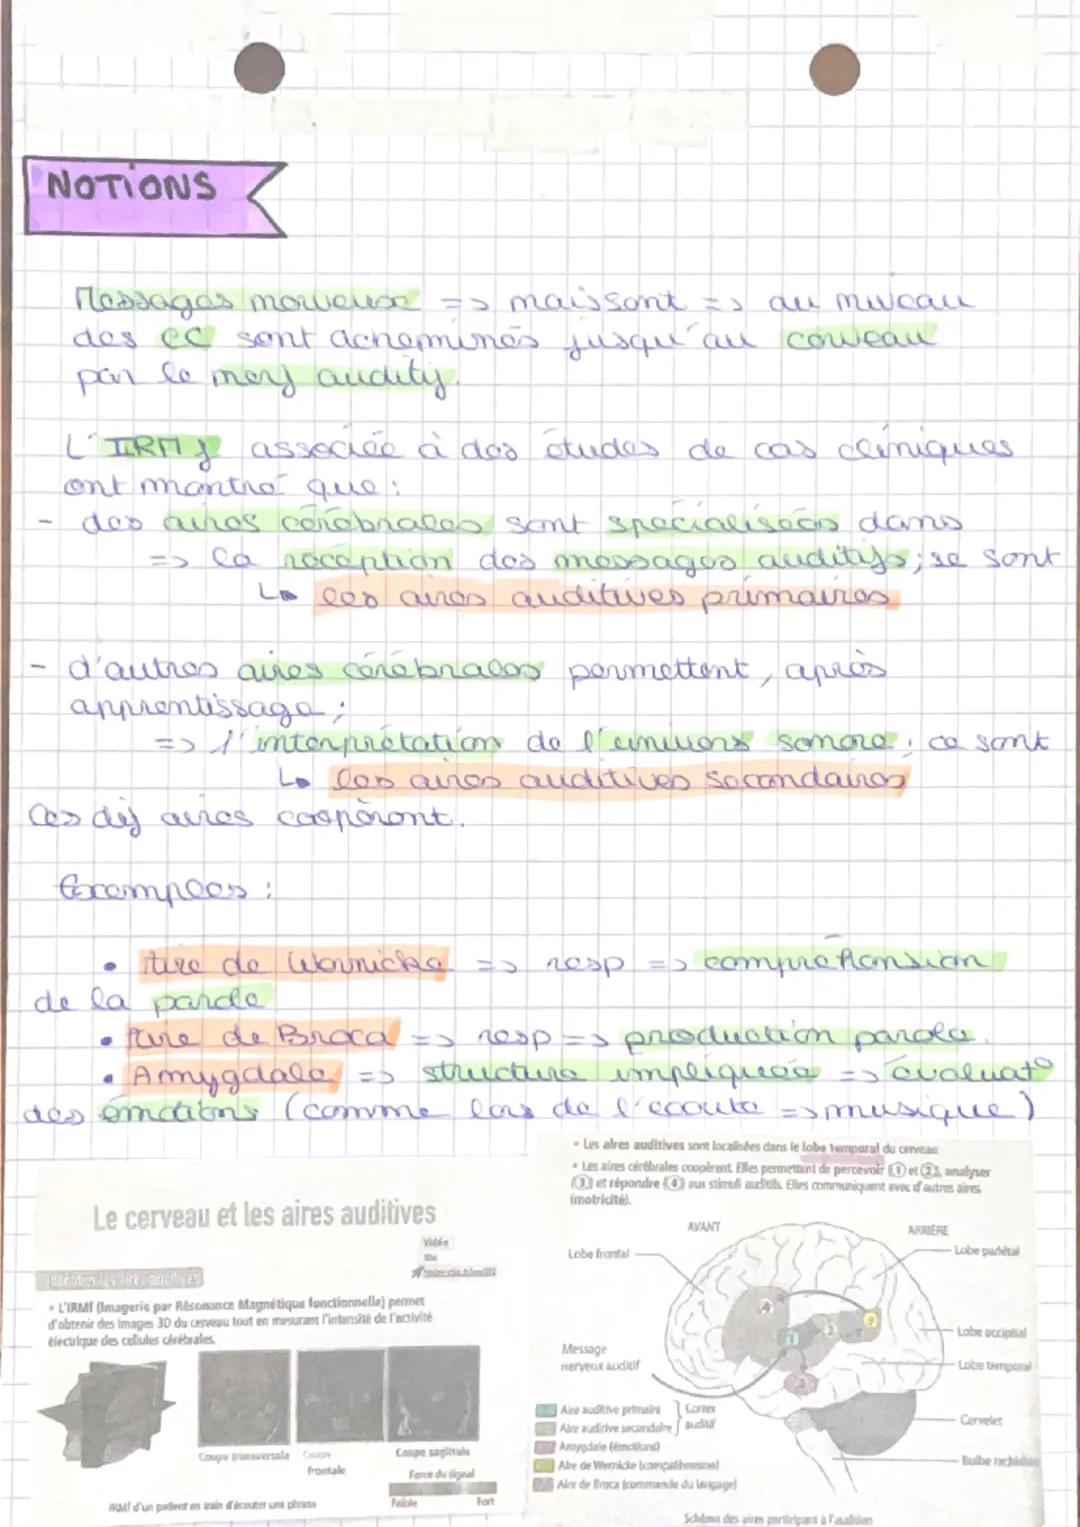 NOTIONS
Messages nerveux => naissent => au niveau
des CC sont acheminés jusqu'au cerveau
par le nerf auditif.
L'IRMf associée à des études de cas cliniques
ont montré que :
- des aires cérébrales sont spécialisées dans
=> la réception des messages auditifs ; se sont
↳ les aires auditives primaires
- d'autres aires cérébrales permettent, après
apprentissage ;
=> l'interprétation de l'univers sonore ; ce sont
↳ les aires auditives secondaires
Ces dif aires coopèrent.
Exemples :
• Aire de Wernicke => resp => compréhension
de la parole
• Aire de Broca => resp => production parole.
• Amygdale => structure impliquée => évaluat°
des émotions (comme lors de l'écoute => musique)
• Les aires auditives sont localisées dans le lobe temporal du cerveau
• Les aires cérébrales coopèrent. Elles permettent de percevoir (① et ②), analyser
(③) et répondre (④) aux stimuli auditifs. Elles communiquent avec d'autres aires
(motricité).
Le cerveau et les aires auditives
Vidéo
Identifier les aires auditives
• L'IRMf (Imagerie par Résonance Magnétique fonctionnelle) permet
d'obtenir des images 3D du cerveau tout en mesurant l'intensité de l'activité
électrique des cellules cérébrales.
Coupe transversale
Coupe
frontale
Coupe sagittale
Force du signal
Faible Fort
IRMf d'un patient en train d'écouter une phrase
AVANT
ARRIÈRE
Lobe frontal
Lobe pariétal
Lobe occipital
Lobe temporal
Message
nerveux auditif
Cervelet
Bulbe rachidien
Aire auditive primaire
Aire auditive secondaire
Cortex
auditif
Amygdale (émotions)
Aire de Wernicke (compréhension)
Aire de Broca (commande du langage)
Schéma des aires participant à l'audition